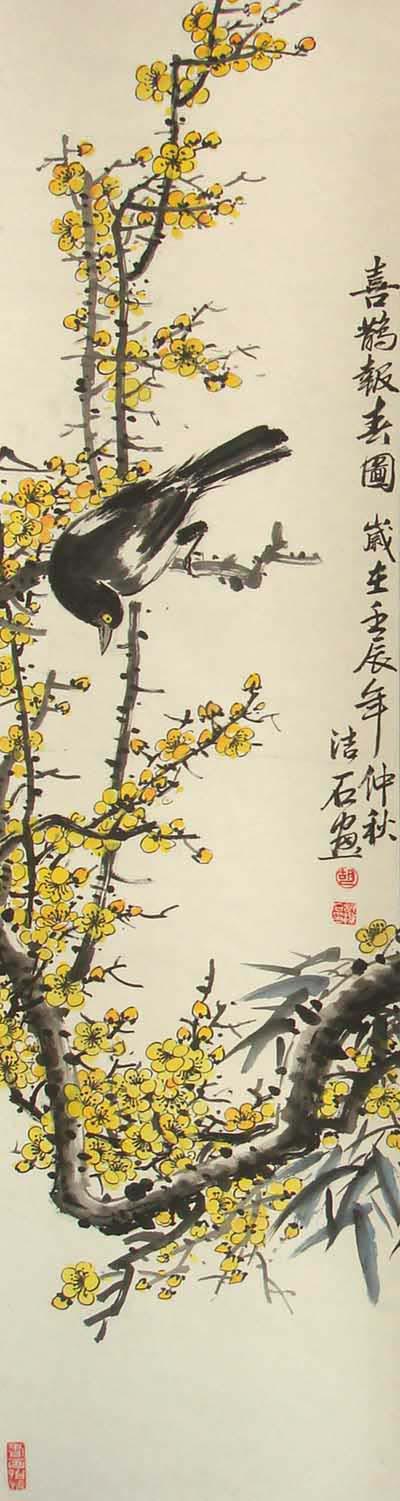 喜鵲報春圖 歲在壬辰年仲秋
洁石画